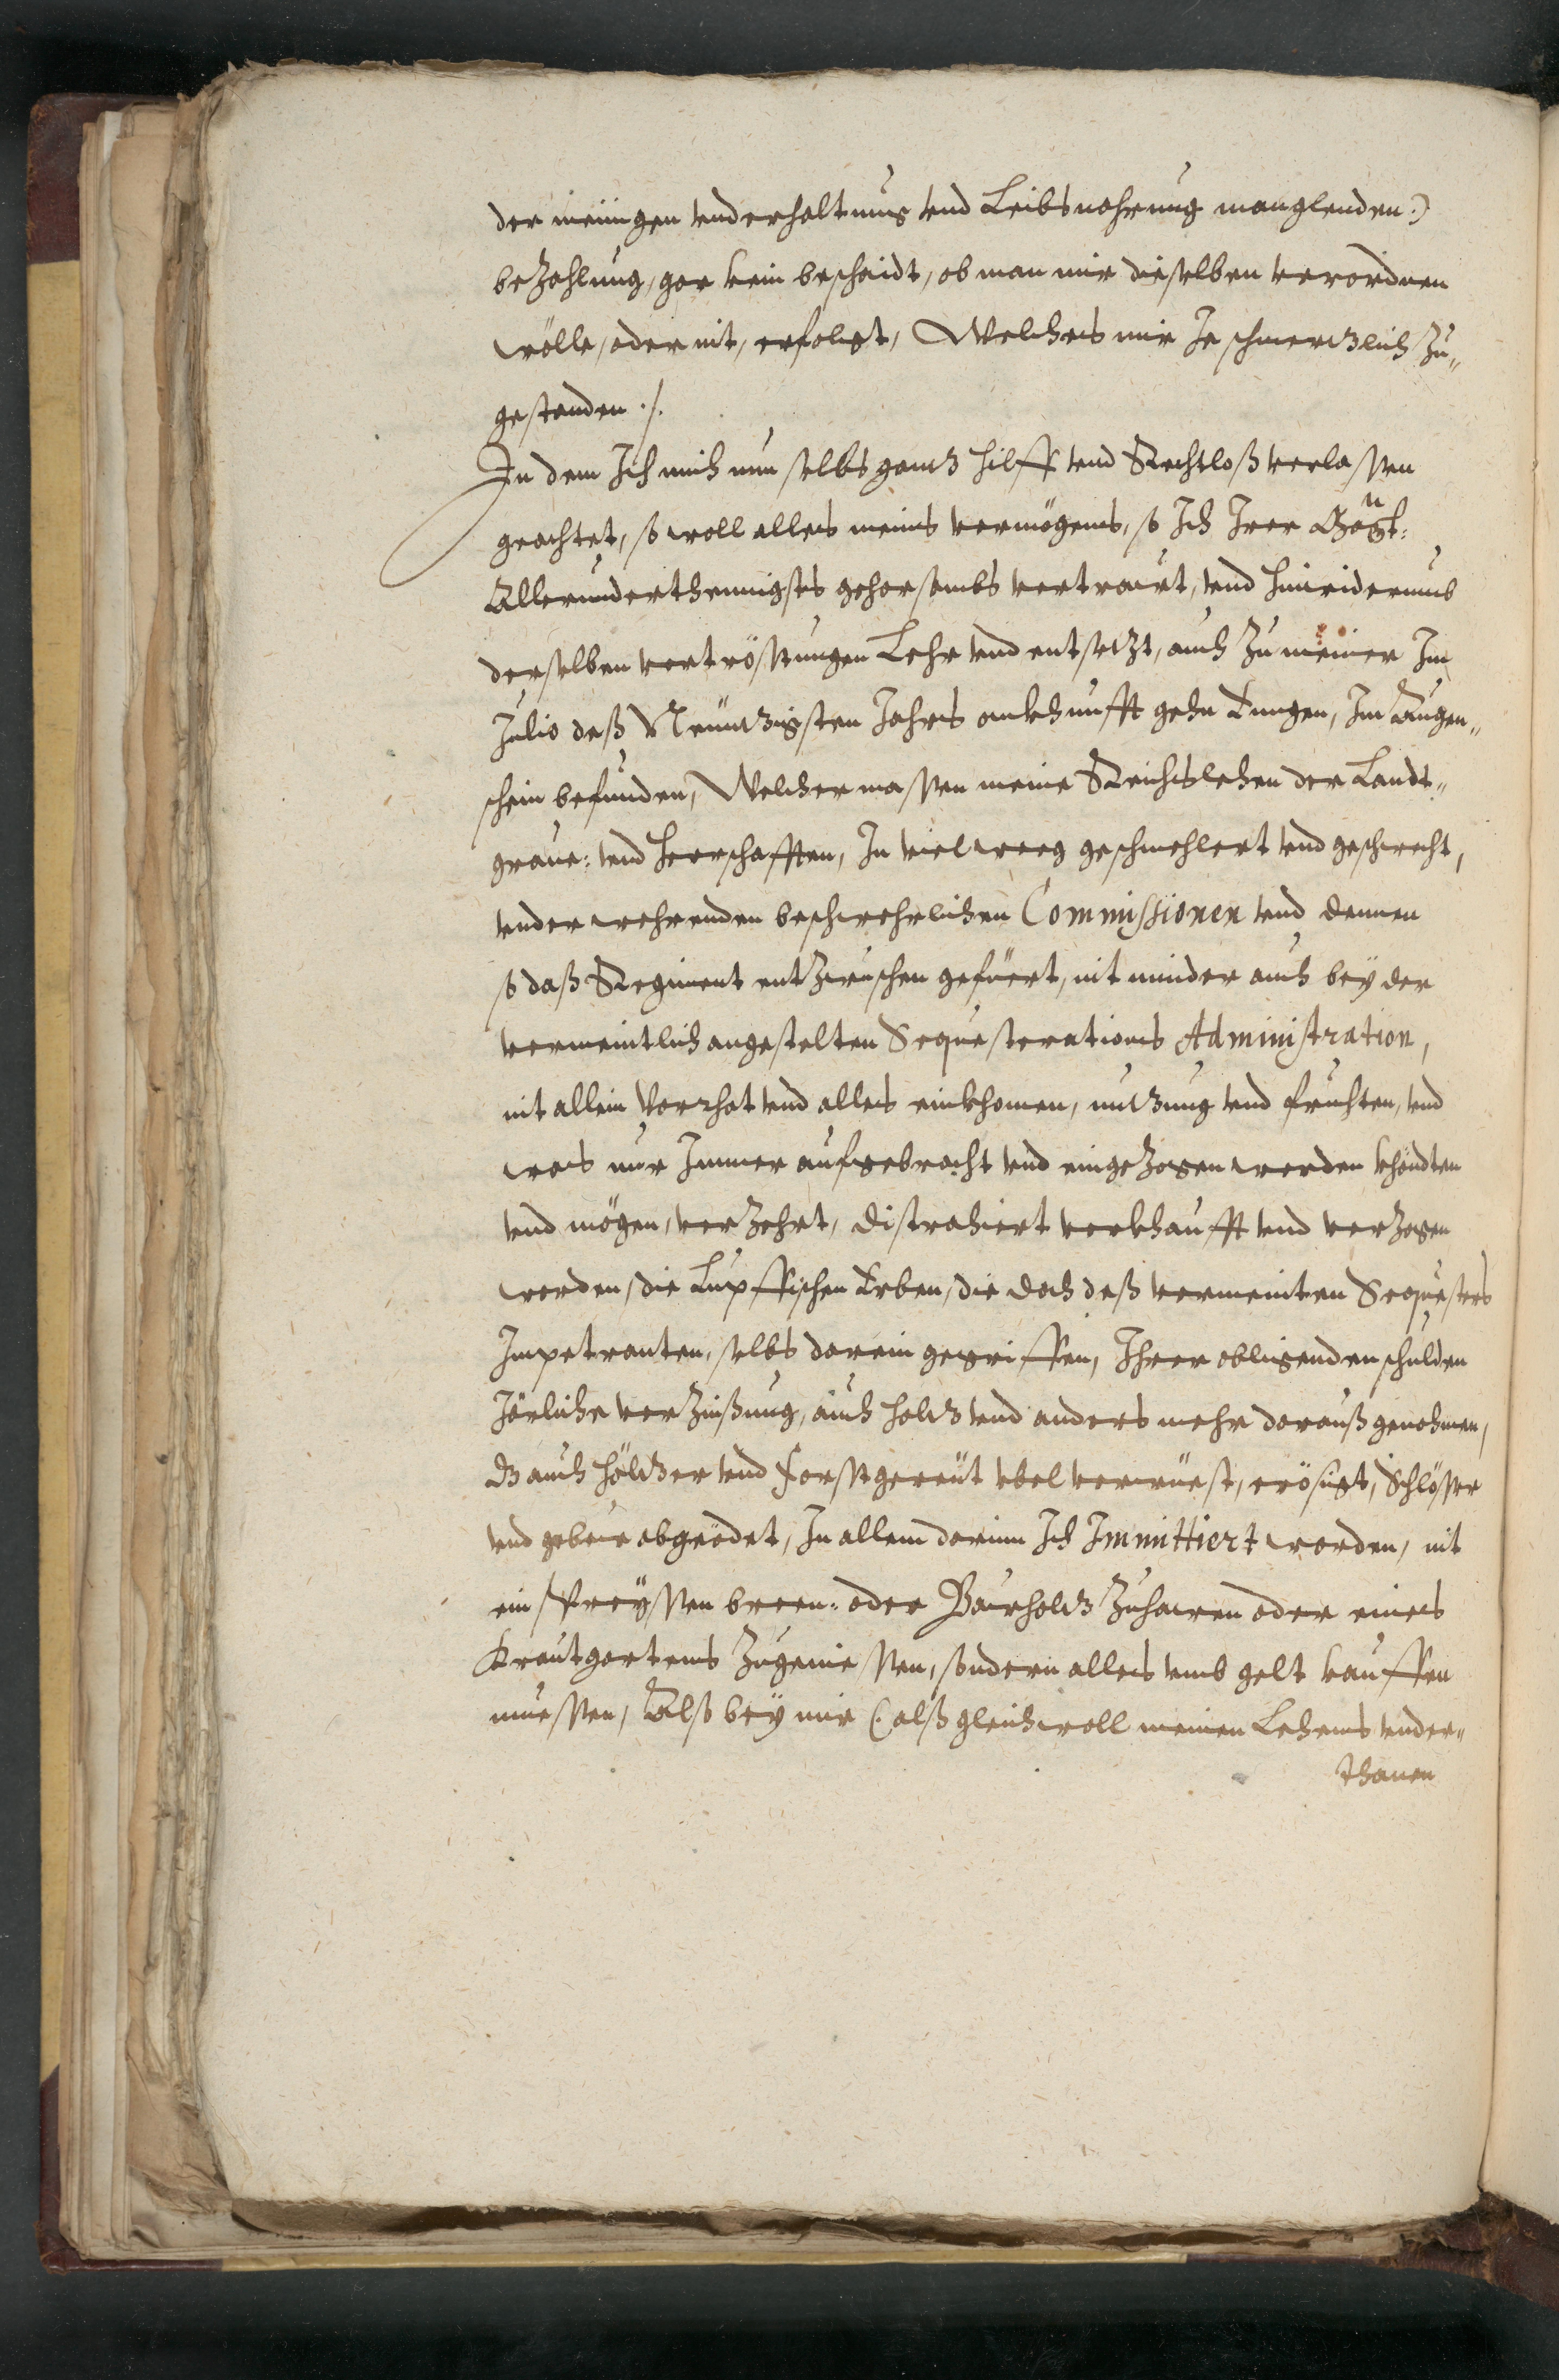 der meinigen vnderhaltnus vnd Leibsnahrung manglenden:)
bezahlung, gar kein beschaidt, ob man mir dieselben verordnen
wölle, oder nit, erfolgt, Welches mir Je schmerzlich zu„
gestanden ./.
In dem Ich mich nun selbs gantz hilff vnd Rechtloß verlassen
geachtet, so woll alles meins vermögens, so Ich Irer
Allerunderthenigsts gehorsambs vertrawt, vnd hinwiderumb
derselben vertröstungen Lehr vnd entsetzt, auch zu meiner Im
Julio deß Neüntzigsten Jahrs ankhunfft gehn Engen, Im Augen„
schein befunden, Welcher massen meine Reichslehen der Landt„
graue: vnd Herrschafften, In vielweeg geschmehlert vnd geschwecht,
vnder wehrenden beschwehrlichen Commissionen vnd dennen
so daß Regiment entzwischen gefüert, nit minder auch bey der
vermeintlich angestelten Sequesterations Administration,
nit allein Vorrhat vnd alles einkhomen, nutzung vnd fruchten, vnd
was nur Immer aufgebracht vnd eingezogen werden khöndten
vnd mögen, verzehrt, distrahiert verkhaufft vnd verzogen
worden, die Lupffischen Erben, die doch deß vermeinten Sequesters
Impetranten, selbs darein gegriffen, Ihrer obligenden schulden
Järliche verzinßung, auch holtz vnd anders mehr darauß genohmen,
Dz auch höltzer vnd Forstgereüt vbel verwüest, erösigt, Schlösser
vnd gebew abgeödet, In allem darinn Ich Immittiert worden, nit
ein breen: oder Bawholtz zuhawen oder eines
Krautgartens zugeniessen, sondern alles vmb gelt kauffen
muessen, Alß bey mir (: alß gleichwoll meinen Lehens vnder„
thanen